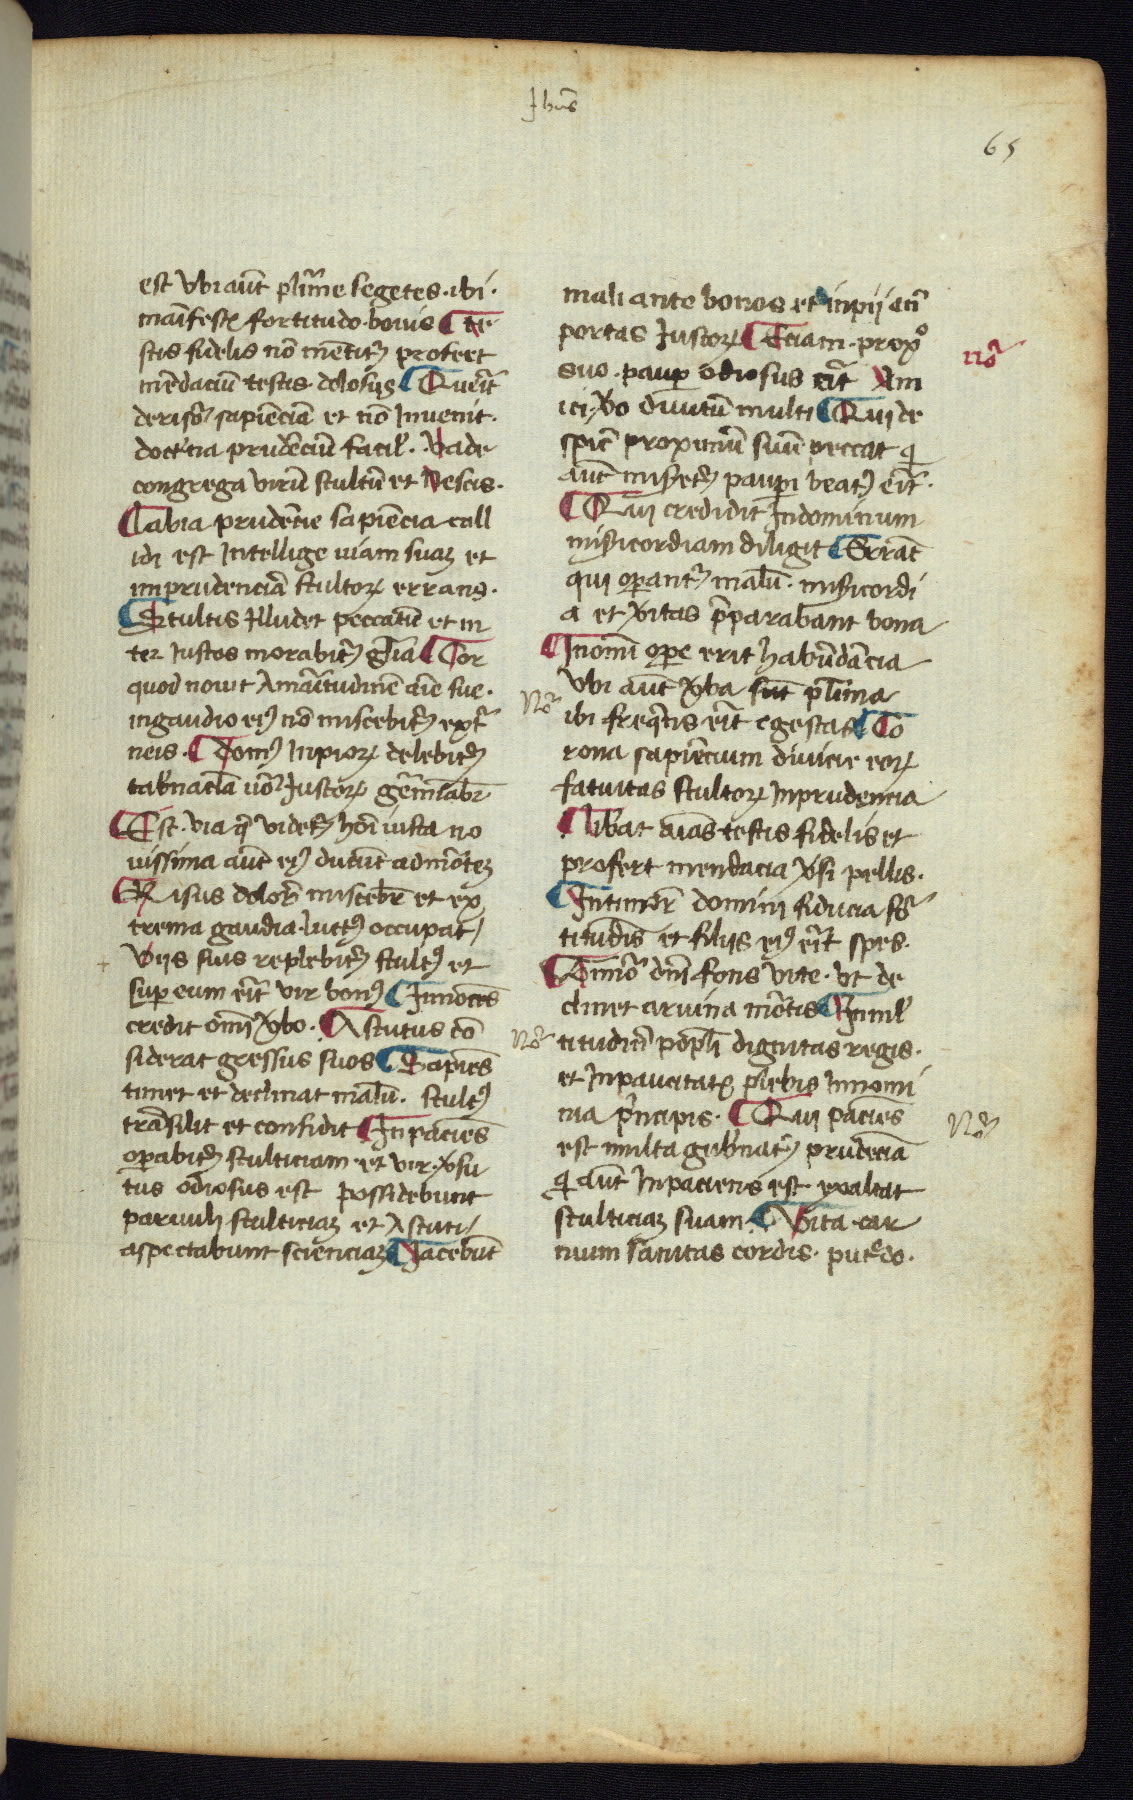 Jhus
65
est vbi aut̄ plime segetes · ibi ·
manifesta fortitudo · bouis ¶ te
stis fidelis nō mētit᷑ profert
mēdaciū testis · dolosꝰ ¶ Querit
derisor sapiēciā et nō Inuenit ·
doctrina prudēciū facil' · Vade
congrega virū stultū et Nescis ·
¶ Labia prudēcie sapiēcia call
idi est Intellige uiam suaꝫ et
imprudenciā stultoꝝ errans ·
¶ Stultis Illudet peccatū et in
ter Iustos morabit᷑ grīa ¶ Cor
quod nouit Amaritudinē aīe sue ·
in gaudio eiꝰ nō miscebit᷑ extr
neis · ¶ Domꝰ Inpioꝝ delebit᷑
tab̄nacla ūo Iustoꝝ gērmīab̄r
¶ Est · via q̄ videt᷑ hōi iusta no
uissima aut̄ eiꝰ ducūt ad mōrteꝫ
¶ Risus dolor̄ misceb̄r et ex
trema gaudia · luctꝰ occupat
Vijs suis replebit᷑ stultꝰ et
suꝑ eum erit vir bonꝰ ¶ Innocēs
credit om̄i v̓bo · ¶ Astutus cō
siderat gressus suos ¶ Sapiēs
timet et declinat malū · stultꝰ
trāsilit et confidit ¶ Inpaciēs
oꝑabit᷑ stulticiam · et vir · v̓su
tus odiosus est possidebunt
paruuli stulticiaꝫ et Astuti
aspectabunt scienciaꝫ ¶ Iacebūt
mali ante bonos et inpij an̄
portas Iustoꝝ ¶ Eciam · proxº
suo · pauꝑ odiosus erit Am
ici · v̓o diuitū multi ¶ Qui de
spic̄ proximū suū peccat q
aut̄ miseret᷑ pauꝑi beatꝰ erit ·
¶ Qui credidit In dominum
misericordiam diligit ¶ Errāt
qui oꝑant᷑ malū · misericordi
a et v̓itas p̄parabant bona
¶ In omī oꝑe erit habūdācia
Vbi aut̄ v̓ba sūt pl̄ima
ibi freq̄ns erit egestas ¶ Co
rona sapiēcium diuicie eoꝝ
fatuitas stultoꝝ Inprudencia
¶ lib̄at aīas testis fidelis et
profert mendacia v̓sipellis ·
¶ In timor̄ domini fiducia for
titudīs et filijs eiꝰ erit spes ·
¶ Timor dn̄i fons vite · vt de
clinet a ruina mōrtis ¶ In ml̄
titudin̄ popl̄i dignitas regis ·
et In paucitate plebis Innomi
nia p̄incipis · ¶ Qui paciēs
est multa gub̄nat᷑ prudēciā
q aut̄ Inpaciens est · exaltat
stulticiaꝫ suam · ¶ Vita · car
nium sanitas cordis · putredo ·
no͛
No͛
No͛
No͛